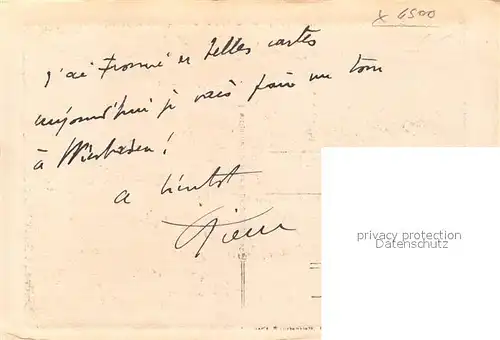 x 6500
J'ai trouvé ces belles cartes
aujourd'hui je vais faire un tour
à Wiesbaden!
a bientot
Pierre
privacy protection
Datenschutz